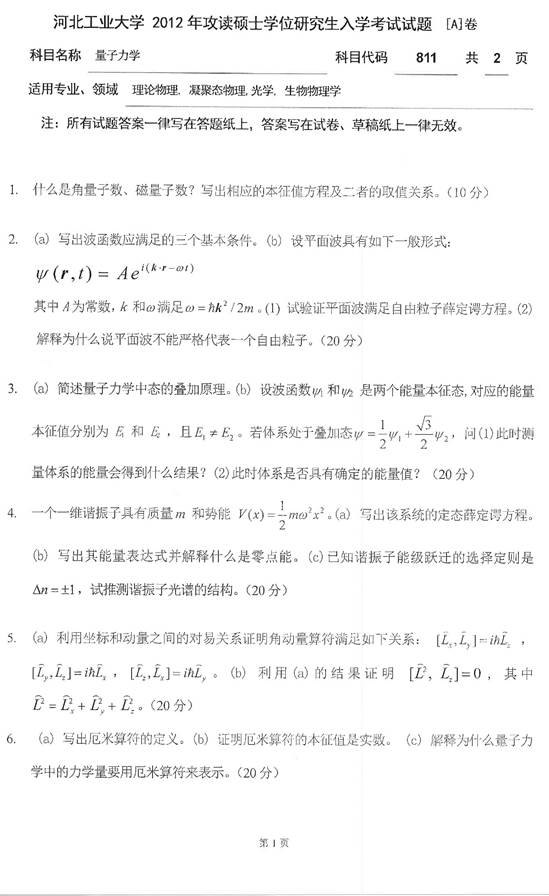 河北工业大学 2012 年攻读硕士学位研究生入学考试试题 [A]卷
科目名称 量子力学 科目代码 811 共 2 页
适用专业、领域 理论物理, 凝聚态物理,光学, 生物物理学
注：所有试题答案一律写在答题纸上，答案写在试卷、草稿纸上一律无效。
1. 什么是角量子数、磁量子数？写出相应的本征值方程及二者的取值关系。(10 分)
2. (a) 写出波函数应满足的三个基本条件。(b) 设平面波具有如下一般形式:
ψ(r,t) = Ae^{i(k·r−ωt)}
其中 A 为常数, k 和ω满足ω=ħk²/2m 。(1) 试验证平面波满足自由粒子薛定谔方程。(2)
解释为什么说平面波不能严格代表一个自由粒子。(20 分)
3. (a) 简述量子力学中态的叠加原理。(b) 设波函数ψ₁和ψ₂ 是两个能量本征态,对应的能量
本征值分别为 E₁ 和 E₂ ，且E₁ ≠ E₂ 。若体系处于叠加态ψ = 1/2 ψ₁ + √3/2 ψ₂，问(1)此时测
量体系的能量会得到什么结果？(2)此时体系是否具有确定的能量值？ (20 分)
4. 一个一维谐振子具有质量m 和势能 V(x) = 1/2 mω²x² 。(a) 写出该系统的定态薛定谔方程。
(b) 写出其能量表达式并解释什么是零点能。(c)已知谐振子能级跃迁的选择定则是
Δn = ±1，试推测谐振子光谱的结构。(20 分)
5. (a) 利用坐标和动量之间的对易关系证明角动量算符满足如下关系： [L̂ₓ, L̂_y] = iħL̂_z ，
[L̂_y, L̂_z] = iħL̂ₓ ， [L̂_z, L̂ₓ] = iħL̂_y 。 (b) 利用(a)的结果证明 [L̂², L̂_z] = 0 ，其中
L̂² = L̂ₓ² + L̂_y² + L̂_z² 。(20 分)
6. (a) 写出厄米算符的定义。(b) 证明厄米算符的本征值是实数。 (c) 解释为什么量子力
学中的力学量要用厄米算符来表示。(20 分)
第 1 页